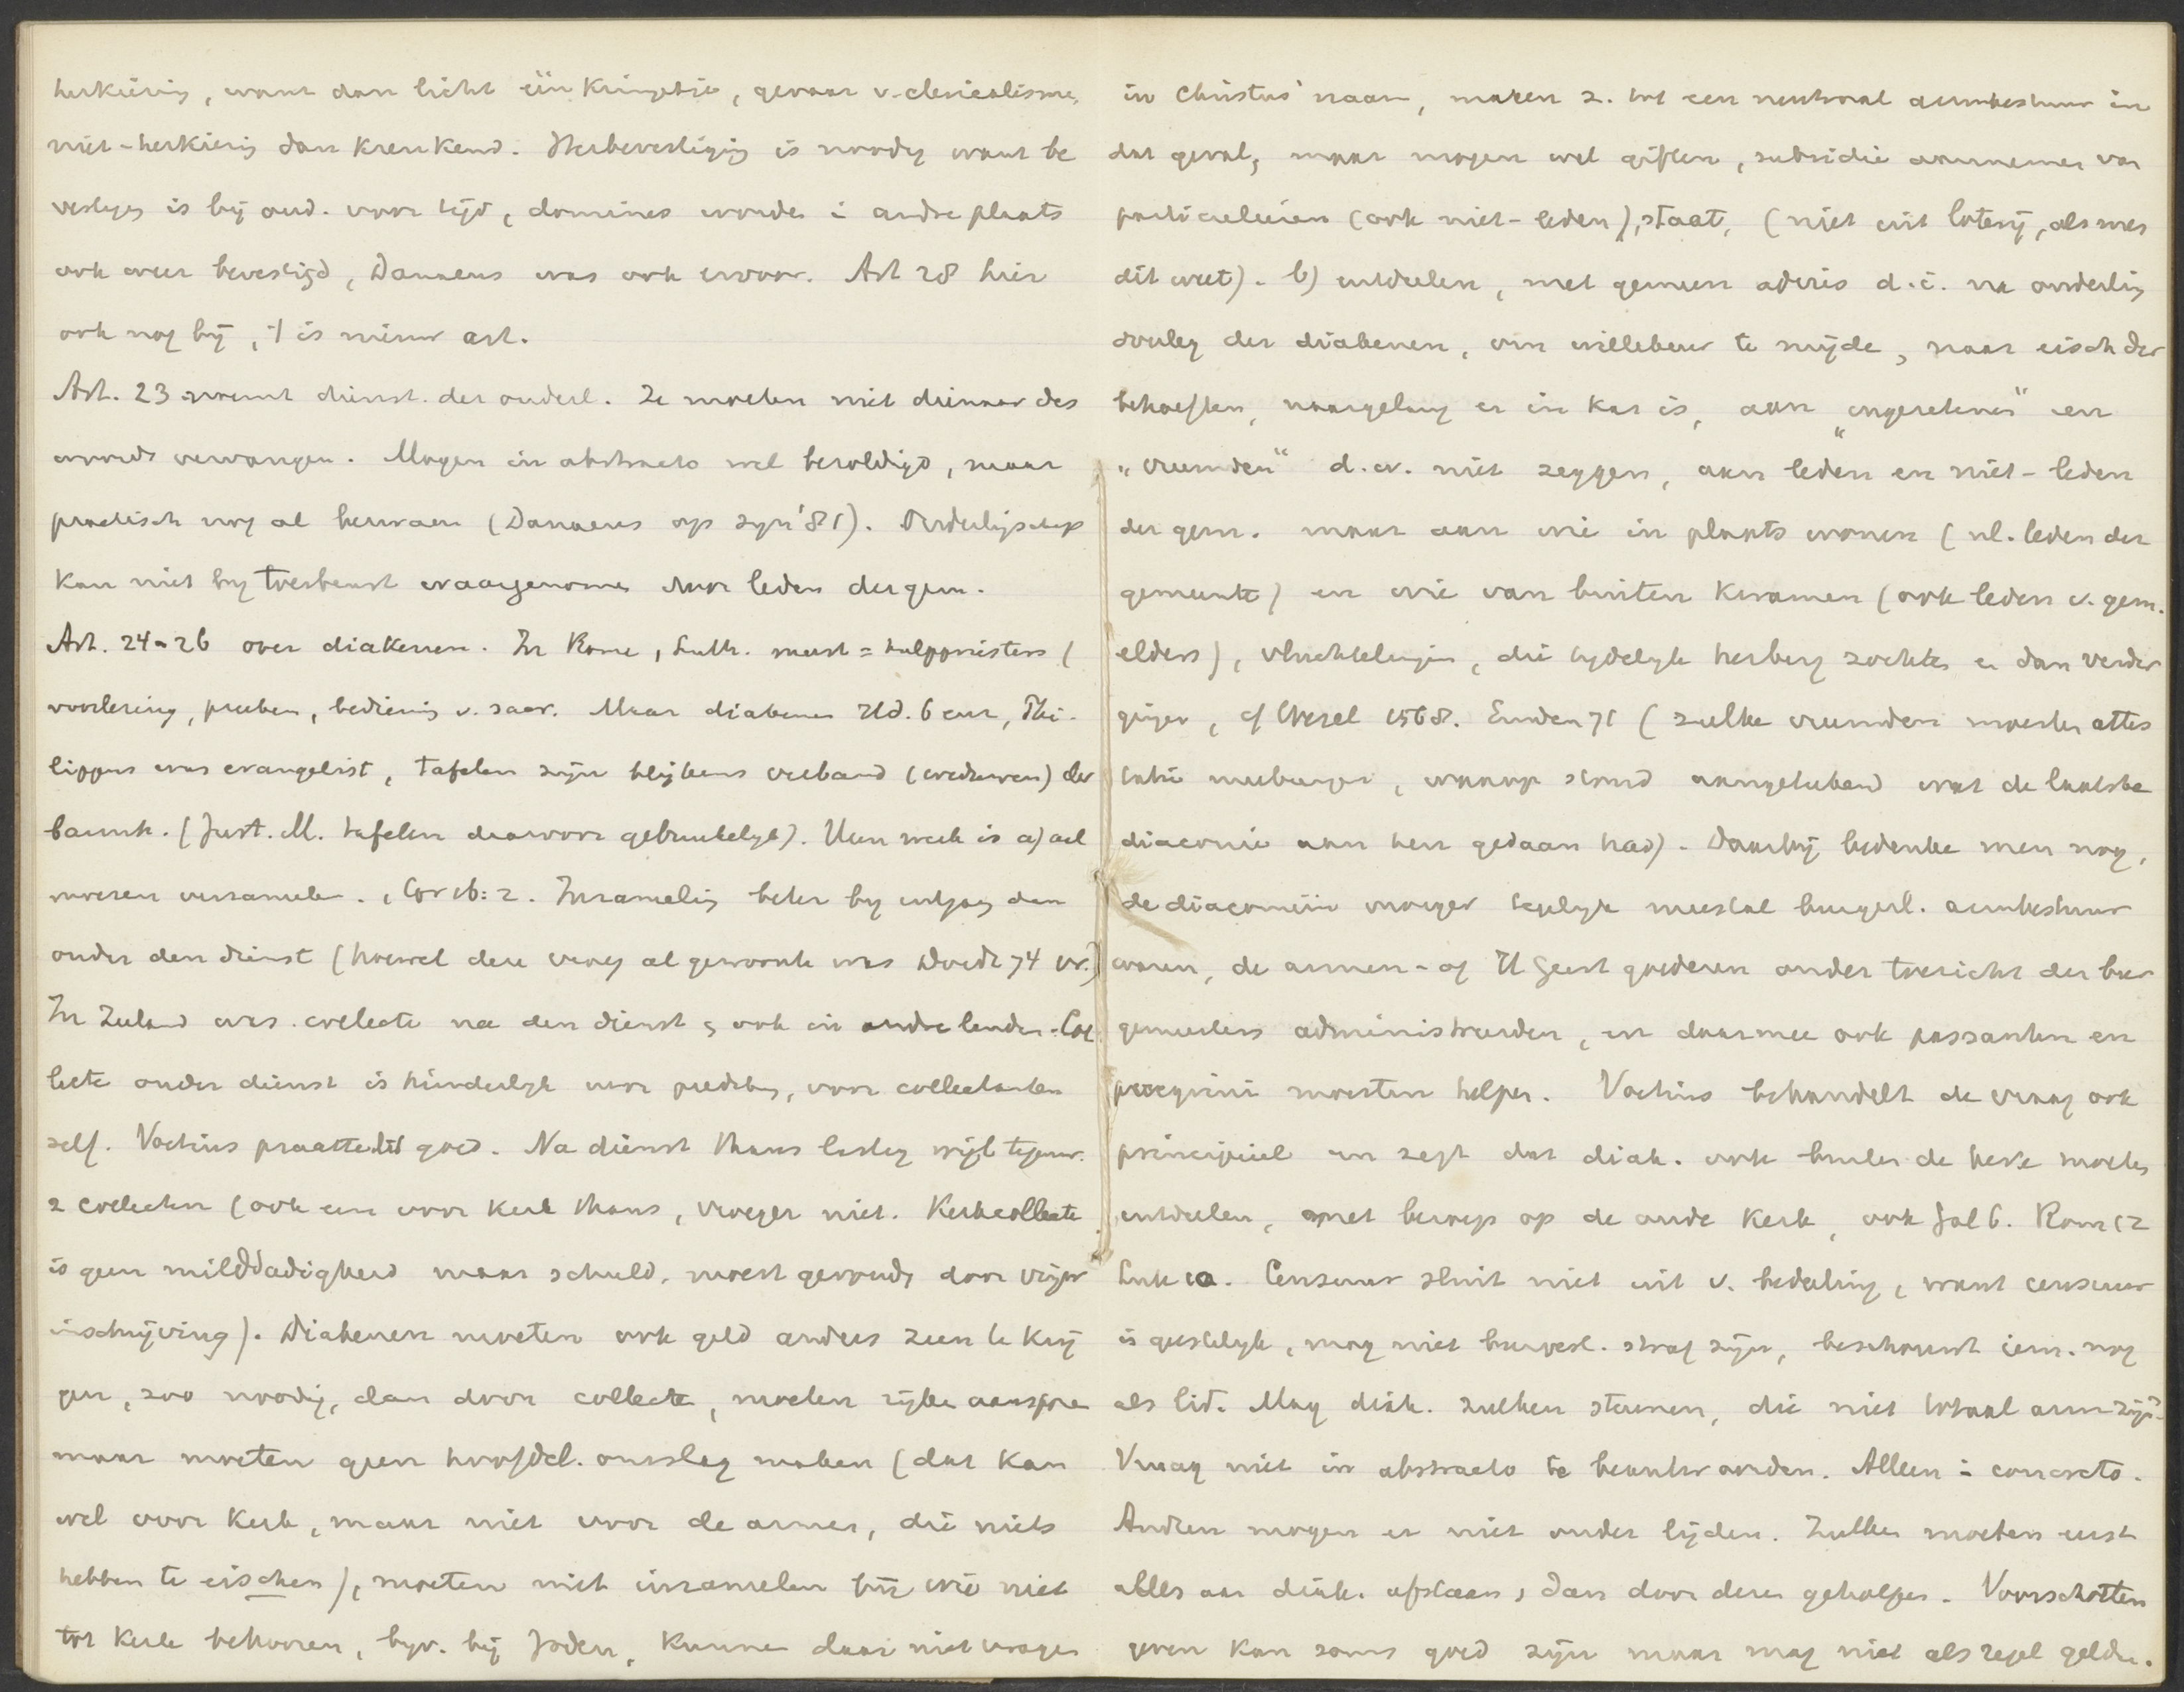 herkiezing, want dan licht één kringetje, gevaar v. clericalisme,
niet-herkiezing dan krenkend. Herbevestiging is noodig want be
vestiging is bij oud. voor tijd, dominees worden i andre plaats
ook weer bevestigd, Danaeus was ook ervoor. Art 28 hier
ook nog bij, 't is nieuw art.
Art. 23 noemt dienst der ouderl. Ze moeten niet dienaar des
woords vervangen. Mogen in abstracto wel bezoldigd, maar
practisch nog al bezwaren (Danaeus op syn '81). Ouderlingschap
kan niet bij toerbeurt waargenomen door leden der gem.
Art. 24-26 over diakenen. In Rome, Luth. meest = hulppriesters (
voorlezing, preeken, bediening v. sacr. Maar diakenen Hd. 6 eerst, Phi-
lippus was evangelist, tafelen zijn blijkens verband (weduwen) der
barmh. (Just. M. tafelen daarvoor gebruikelijk). Hun werk is a) ael
moezen verzamelen. 1 Cor 16:2. Inzameling beter bij uitgang dan
onder den dienst (hoewel deze vroeg al gewoonte was Dordt 74 vr.)
In Zeeland was collecte na den dienst, ook in andre landen. Col
lecte onder dienst is hinderlijk voor prediking, voor collectanten
zelf. Voetius praatte dit goed. Na dienst thans lastig wijl tegenw.
2 collecten (ook een voor kerk thans, vroeger niet. Kerkcollecte
is geen milddadigheid maar schuld, moest gevonden door vrijw
inschrijving). Diakenen moeten ook geld anders zien te krij
gen, zoo noodig, dan door collecte, moeten rijke aanspre
maar moeten geen hoofdel. omslag maken (dat kan
wel voor kerk, maar niet voor de armen, die niets
hebben te eischen), moeten niet inzamelen bij wie niet
tot kerk behooren, bijv. bij Joden, kunnen daar niet vragen
in Christus' naam, maken z. tot een neutraal armbestuur in
dat geval, maar mogen wel giften, subsidie aannemen van
particulieren (ook niet-leden), staat, (niet uit loterij, als men
dit weet). b) uitdeelen, met gemeen advies d.i. na onderling
overleg der diakenen, om willekeur te mijde, naar eisch der
behoeften, naargelang er in kas is, aan "ingezetenen" en
"vreemden" d.w. niet zeggen, aan leden en niet-leden
der gem. maar aan wie in plaats wonen (nl. leden der
gemeente) en wie van buiten kwamen (ook leden v. gem.
elders), vluchtelingen, die tijdelijk herberg zochten en dan verder
gingen, cf Wesel 1568. Emden 71 (zulke vreemden moesten attes
tatie meebrengen, waarop stond aangeteekend wat de laatste
diaconie aan hen gedaan had). Daarbij bedenke men nog,
de diaconieën vroeger tegelijk meestal burgerl. armbestuur
waren, de armen- of H Geest goederen onder toezicht der bur
gemeesters administreerden, en daarmee ook passanten en
peregrini moesten helpen. Voetius behandelt de vraag ook
principieel en zegt dat diak. ook buiten de kerk moeten
uitdeelen, met beroep op de oude kerk, ook Gal 6. Rom 12
Luk 10. Censuur sluit niet uit v. bedeeling, want censuur
is geestelijk, mag niet burgerl. straf zijn, beschouwt iem. nog
als lid. Mag diak. zulken steunen, die niet totaal arm zijn?
Vraag niet in abstracto te beantwoorden. Alleen i concreto.
Andren mogen er niet onder lijden. Zulken moeten eerst
alles aan diak. afstaan, dan door deze geholpen. Voorschotten
geven kan soms goed zijn maar mag niet als regel gelden.